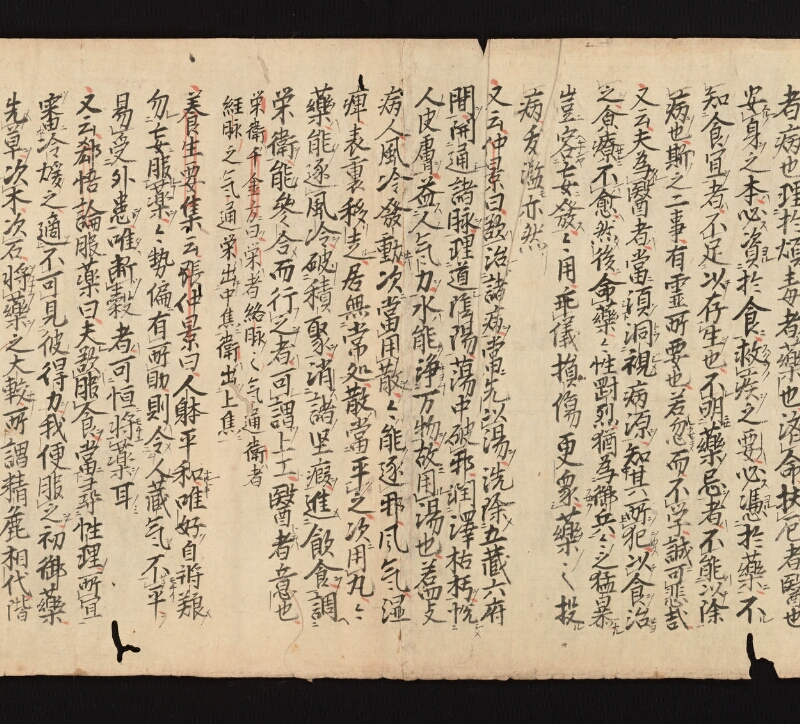 者病也理於煩毒者藥也済命扶危者醫也
安身之本必資於食救疾之要必憑於藥不
知食宜者不足以存生也不明藥忌者不能以除
病也斯之二事有霊所要也若忽而不学誠可悲哉
又云夫為醫者當須洞視病源知其所犯以食治
之食療不愈然後命藥〻性剛烈猶為御兵〻之猛暴
豈容妄發〻用乖儀損傷更衆藥之投
病夭濫亦然
又云仲景曰欲治諸病當先以湯洗除五蔵六府
間開通諸脉理道陰陽蕩中破邪潤澤枯朽悦
人皮膚益人気力水能浄万物故用湯也若四支
病人風冷發動次當用散〻能逐邪風気湿
痺表裏移走居無常処散當平之次用丸〻
藥能逐風冷破積聚消諸堅癥進飲食調
栄衛能參合而行之者可謂上工醫者意也
栄衛千金方曰栄者絡脉之気通衛者
経脉之気通栄出中焦衛出上焦
養生要集云張仲景曰人躰平和唯好自将粮
勿妄服藥〻勢偏有所助則令人蔵気不平
易受外患唯断穀者可恒将藥耳
又云郄悟論服藥曰夫欲服食當尋性理所宜
審冷煖之適不可見彼得力我便服之初御藥
先草次木次石将藥之大較所謂精麁相代階